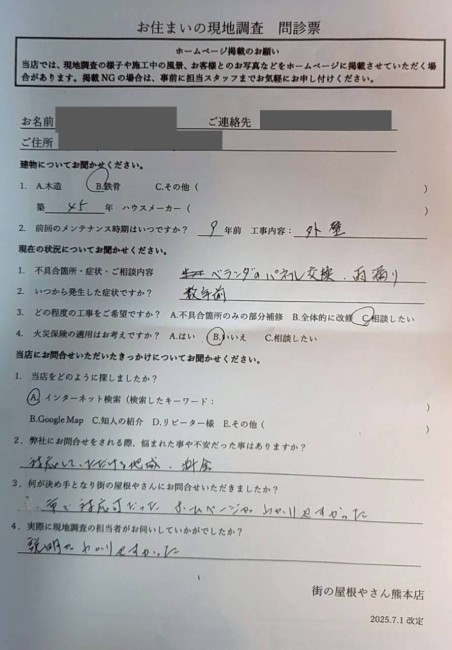 お住まいの現地調査 問診票
ホームページ掲載のお願い
当店では、現地調査の様子や施工中の風景、お客様とのお写真などをホームページに掲載させていただく場
合があります。掲載NGの場合は、事前に担当スタッフまでお気軽にお申し付けください。
お名前 ご連絡先
ご住所
建物についてお聞かせください。
1. A.木造 B.鉄骨 C.その他（ ）
築 45 年 ハウスメーカー（ ）
2. 前回のメンテナンス時期はいつですか？ 9 年前 工事内容： 外壁
現在の状況についてお聞かせください。
1. 不具合箇所・症状・ご相談内容 ベランダのパネル交換、雨漏り
2. いつから発生した症状ですか？ 数年前
3. どの程度の工事をご希望ですか？ A.不具合箇所のみの部分補修 B.全体的に改修 C.相談したい
4. 火災保険の適用はお考えですか？ A.はい B.いいえ C.相談したい
当店にお問合せいただいたきっかけについてお聞かせください。
1. 当店をどのように探しましたか？
A. インターネット検索（検索したキーワード： ）
B.Google Map C.知人の紹介 D.リピーター様 E.その他（ ）
2. 弊社にお問合せをされる際、悩まれた事や不安だった事はありますか？
対応していただける地域、料金
3. 何が決め手となり街の屋根やさんにお問合せいただきましたか？
対応可だった ホームページがわかりやすかった
4. 実際に現地調査の担当者がお伺いしていかがでしたか？
説明がわかりやすかった
街の屋根やさん熊本店
2025.7.1 改定